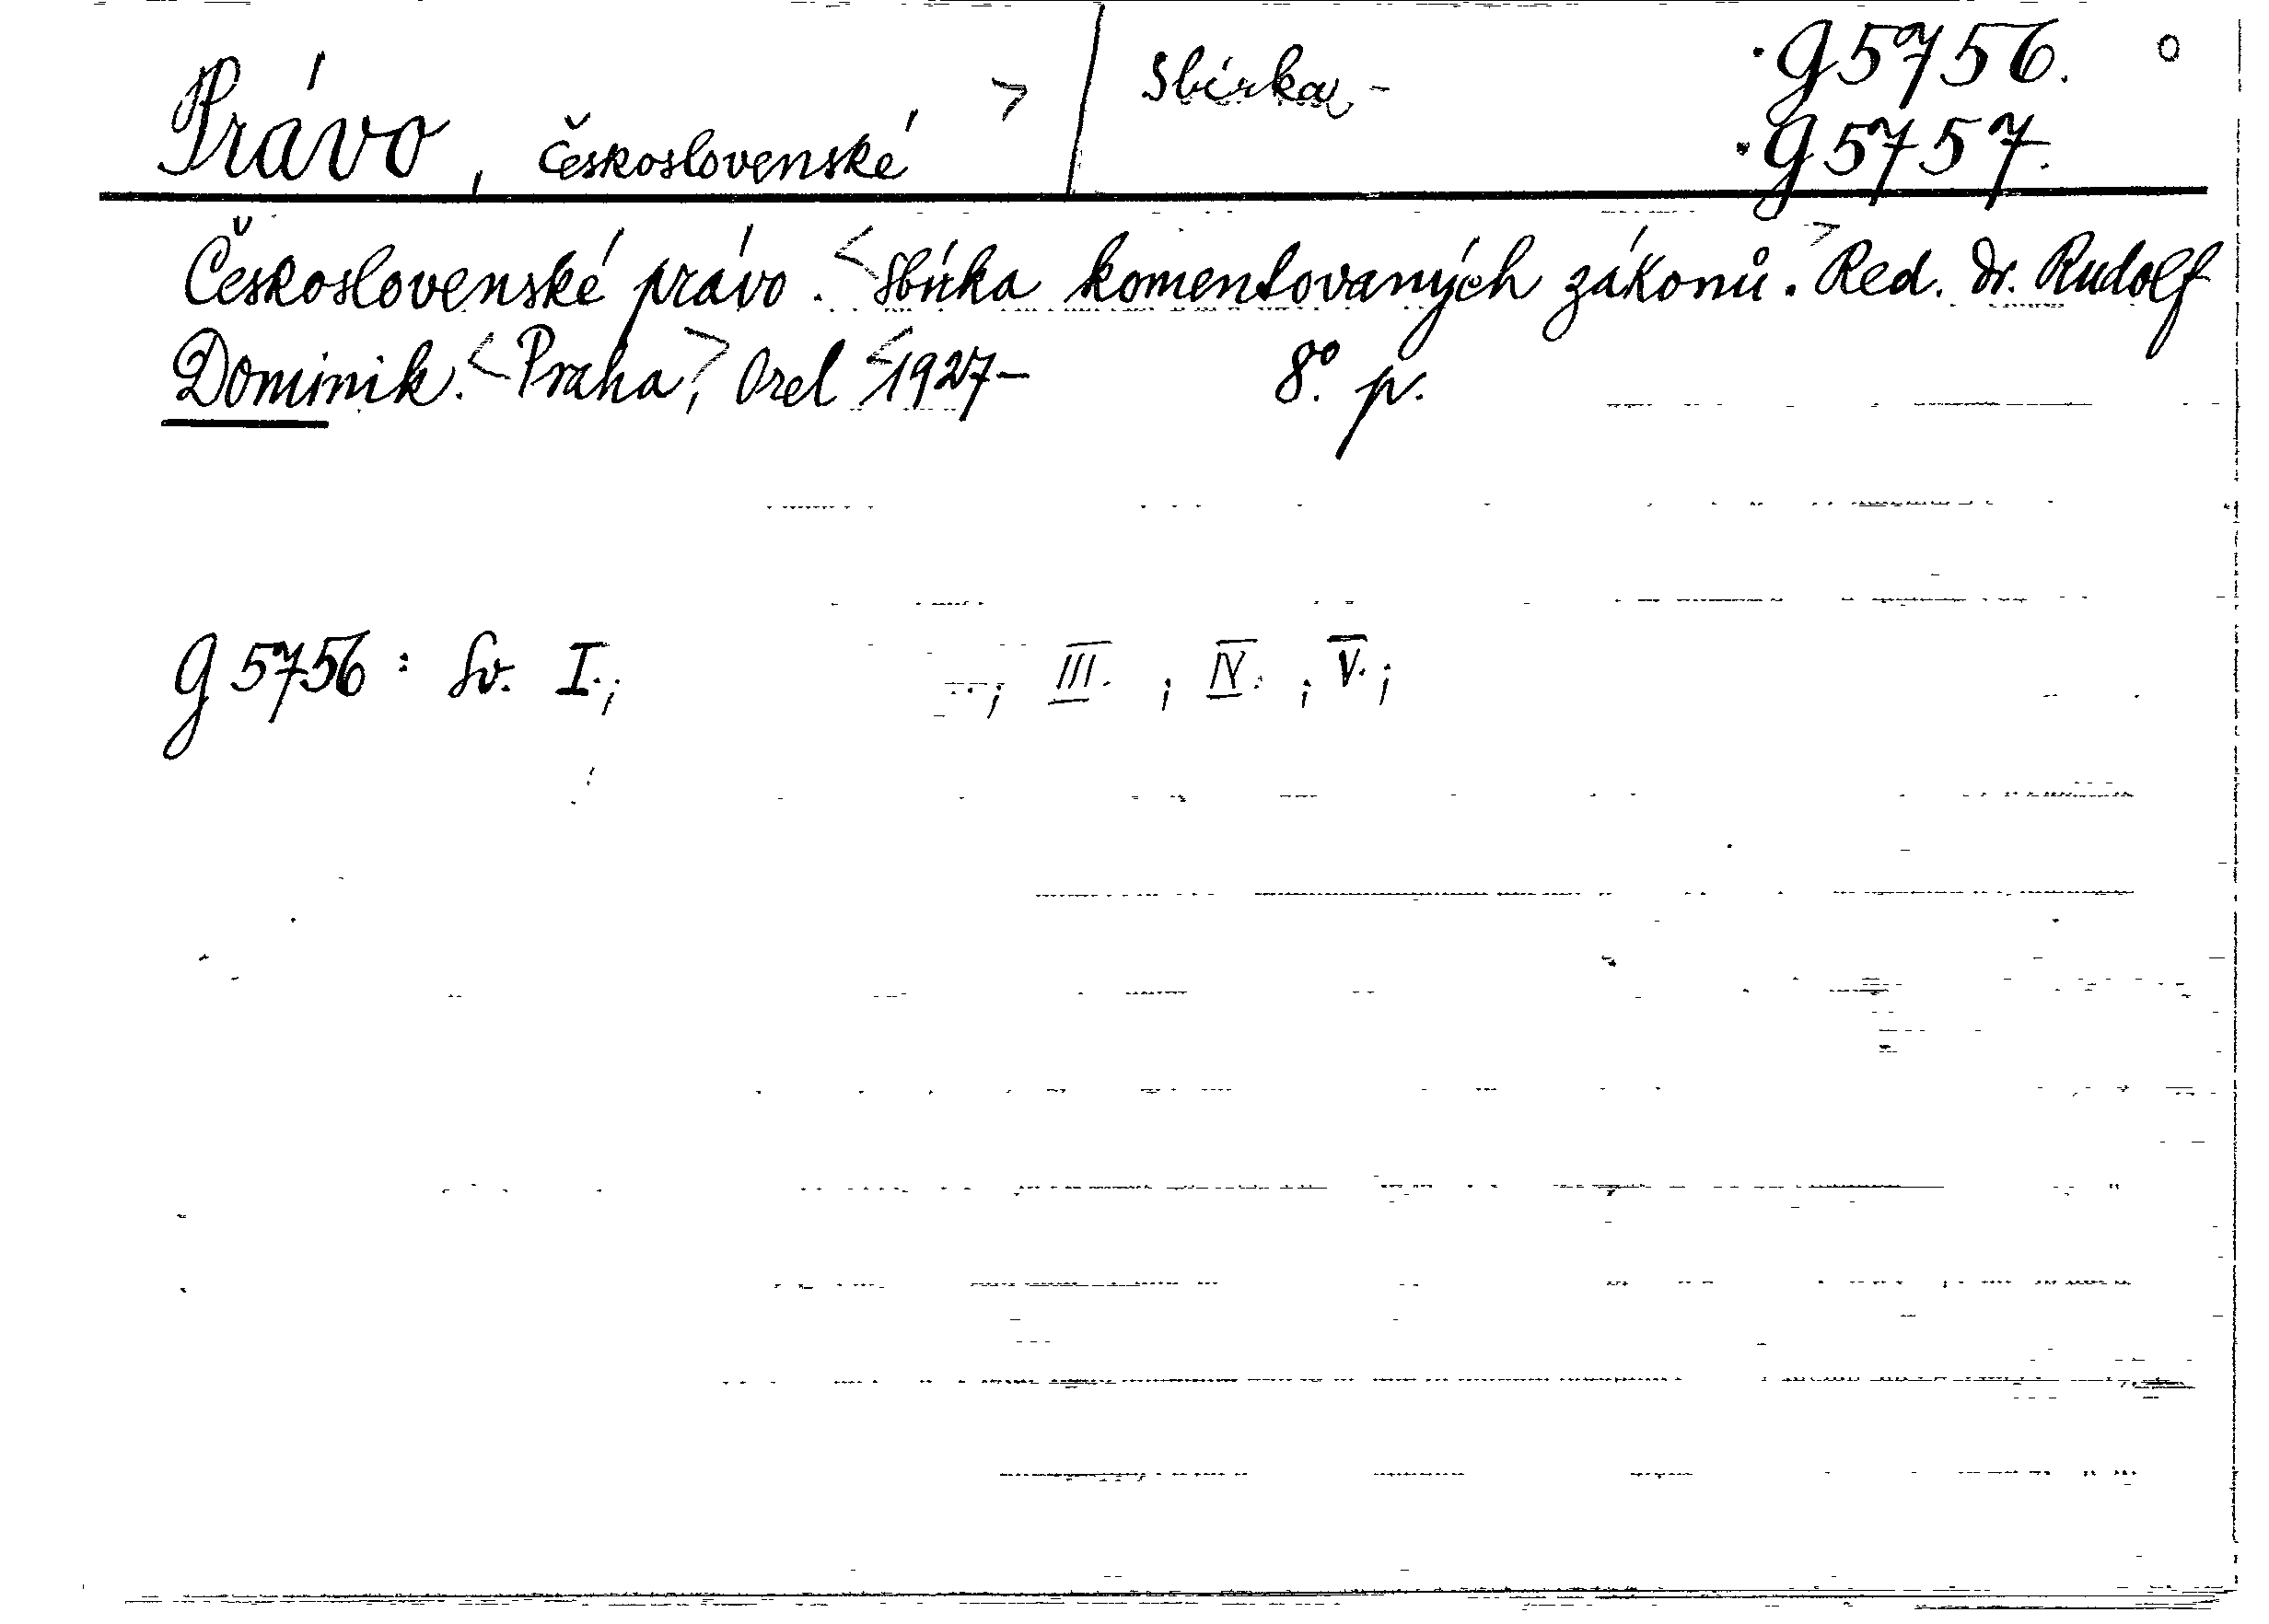 Právo, Československé > / Sbírka,- · g 5756. o
· g 5757.
Československé právo. < Sbírka komentovaných zákonů. > Red. Dr. Rudolf
Dominik. < Praha, > Orel < 1927- 8°. p.
g 5756: Sv. I.; ; III. ; IV. ; V. ;